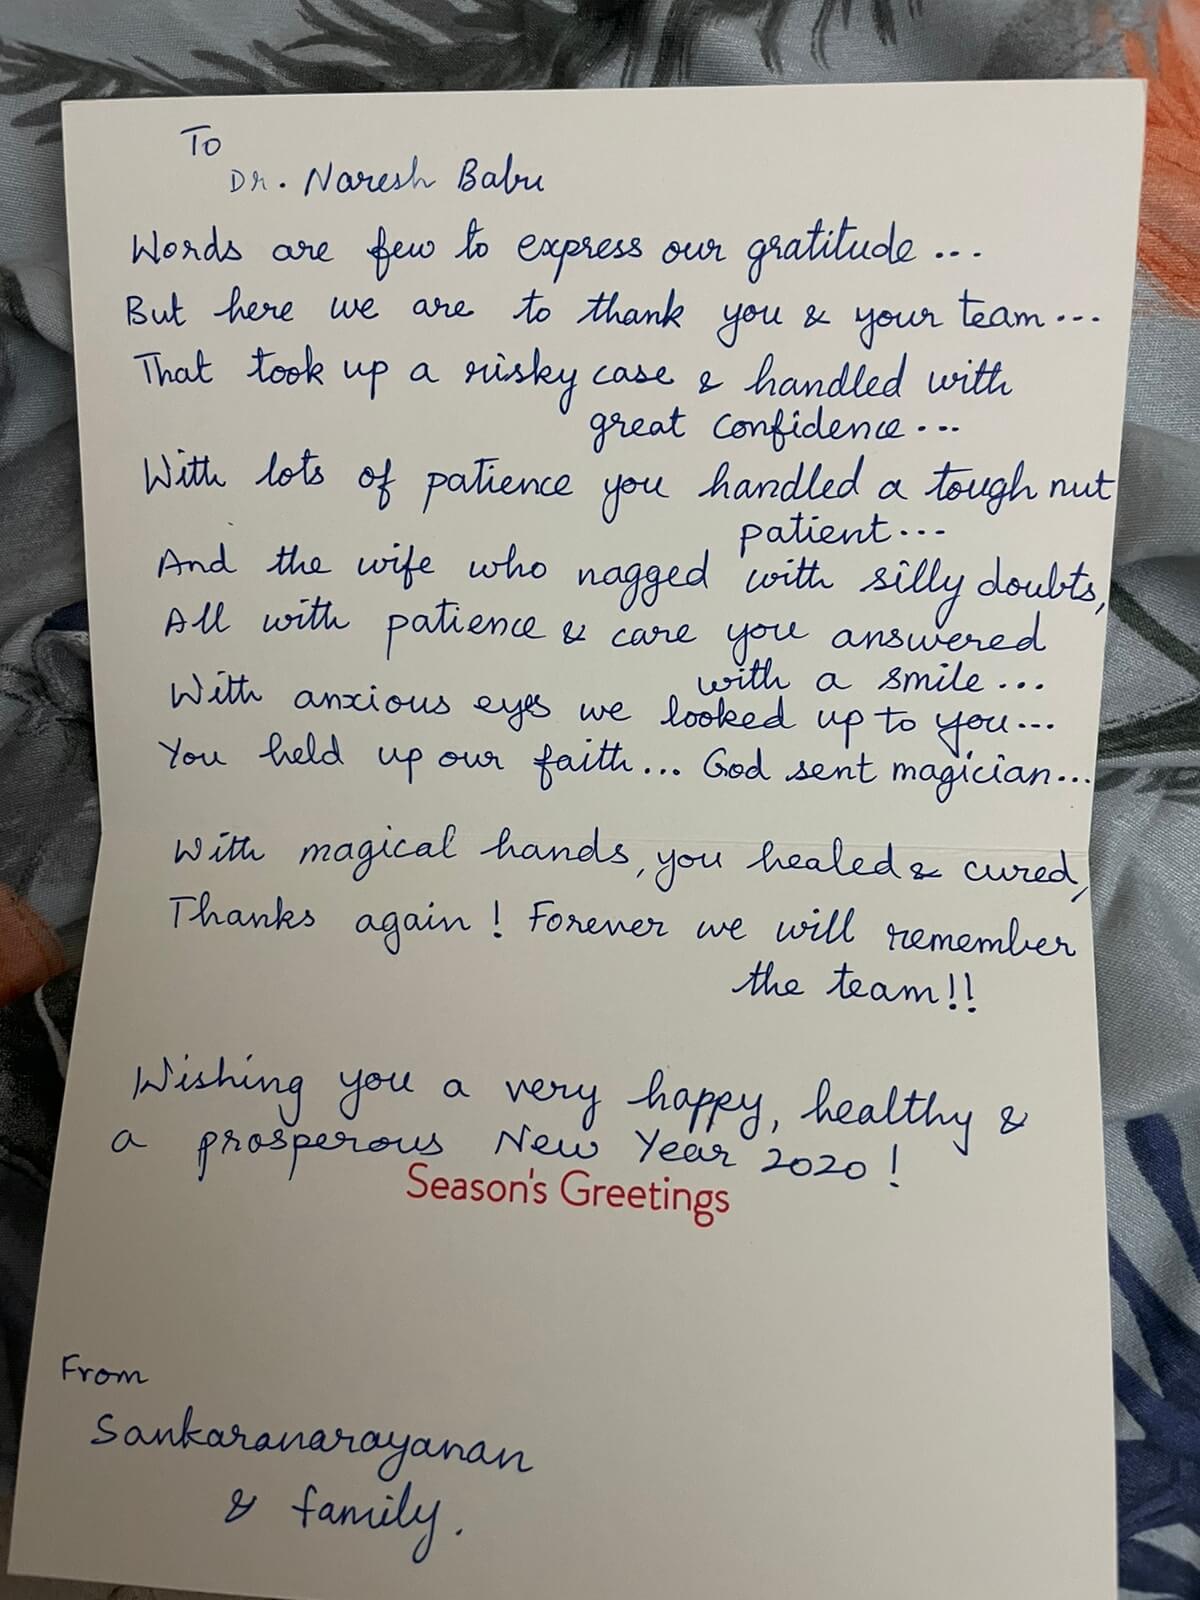 To
Dr. Naresh Babu
Words are few to express our gratitude ...
But here we are to thank you & your team ...
That took up a risky case & handled with
great confidence ...
With lots of patience you handled a tough nut
patient ...
And the wife who nagged with silly doubts,
All with patience & care you answered
with a smile ...
With anxious eyes we looked up to you ...
You held up our faith ... God sent magician ...
With magical hands, you healed & cured,
Thanks again ! Forever we will remember
the team !!
Wishing you a very happy, healthy &
a prosperous New Year 2020 !
Season's Greetings
From
Sankaranarayanan
& family.